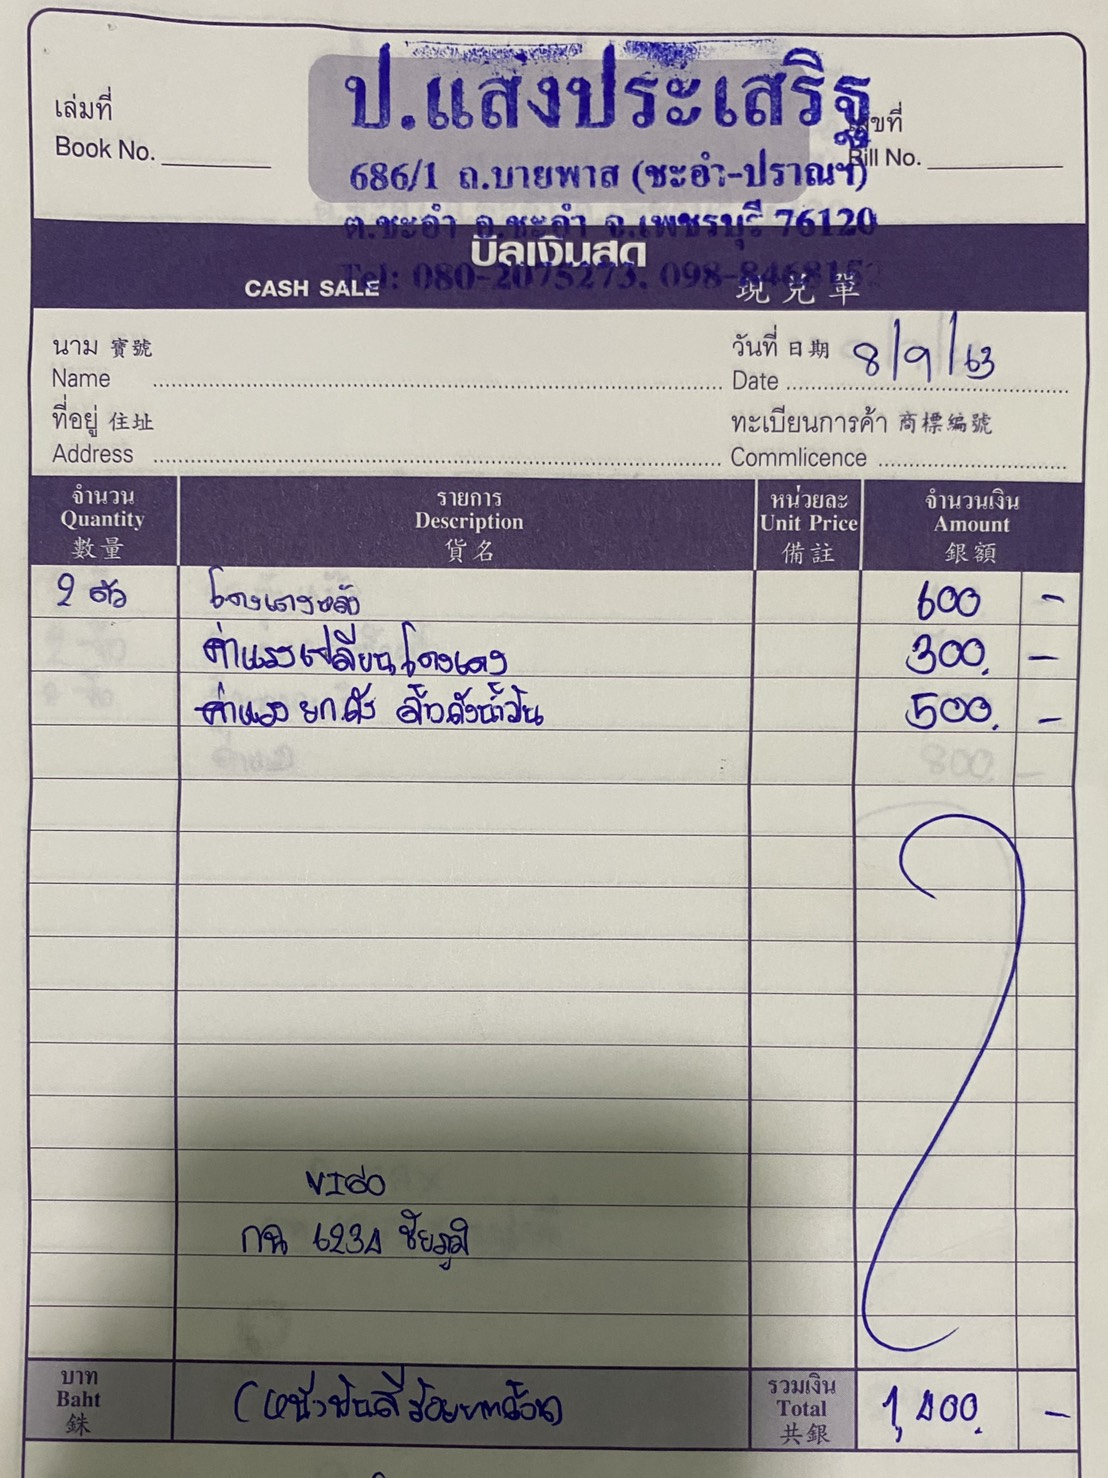 ป.แสงประเสริฐ
686/1 ถ.บายพาส (ชะอำ-ปราณฯ)
ต.ชะอำ อ.ชะอำ จ.เพชรบุรี 76120
Tel: 080-2075273, 098-8468152
เล่มที่ เลขที่
Book No. Bill No.
บิลเงินสด
CASH SALE 現兌單
นาม 寶號 วันที่ 日期 8/9/63
Name Date
ที่อยู่ 住址 ทะเบียนการค้า 商標編號
Address Commlicence
จำนวน รายการ หน่วยละ จำนวนเงิน
Quantity Description Unit Price Amount
數量 貨名 備註 銀額
2 ตัว 600 -
ค่าแรงเปลี่ยน 300. -
ค่าแรง ยก.ถัง ล้างถังน้ำมัน 500. -
VIGO
กฉ 6234 ชัยภูมิ
บาท รวมเงิน
Baht (หนึ่งพันสี่ร้อยบาทถ้วน) Total 1,400. -
銖 共銀